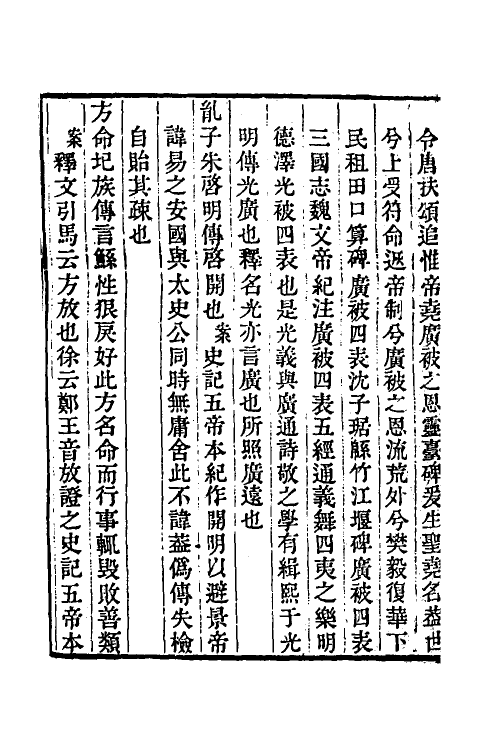 令唐扶頌追惟帝堯廣被之恩靈臺碑爰生聖堯名葢世
兮上受符命遂帝制兮廣被之恩流荒外兮樊毅復華下
民租田口算碑廣被四表沈子琚緜竹江堰碑廣被四表
三國志魏文帝紀注廣被四表五經通義舞四夷之樂明
德澤光被四表也是光義與廣通詩敬之學有緝熙于光
明傳光廣也釋名光亦言廣也所照廣遠也
亂子朱啓明傳啓開也案史記五帝本紀作開明以避景帝
諱易之安國與太史公同時無庸舍此不諱葢僞傳失檢
自貽其疎也
方命圮族傳言鯀性狠戾好此方名命而行事輒毀敗善類
案釋文引馬云方放也徐云鄭王音放證之史記五帝本